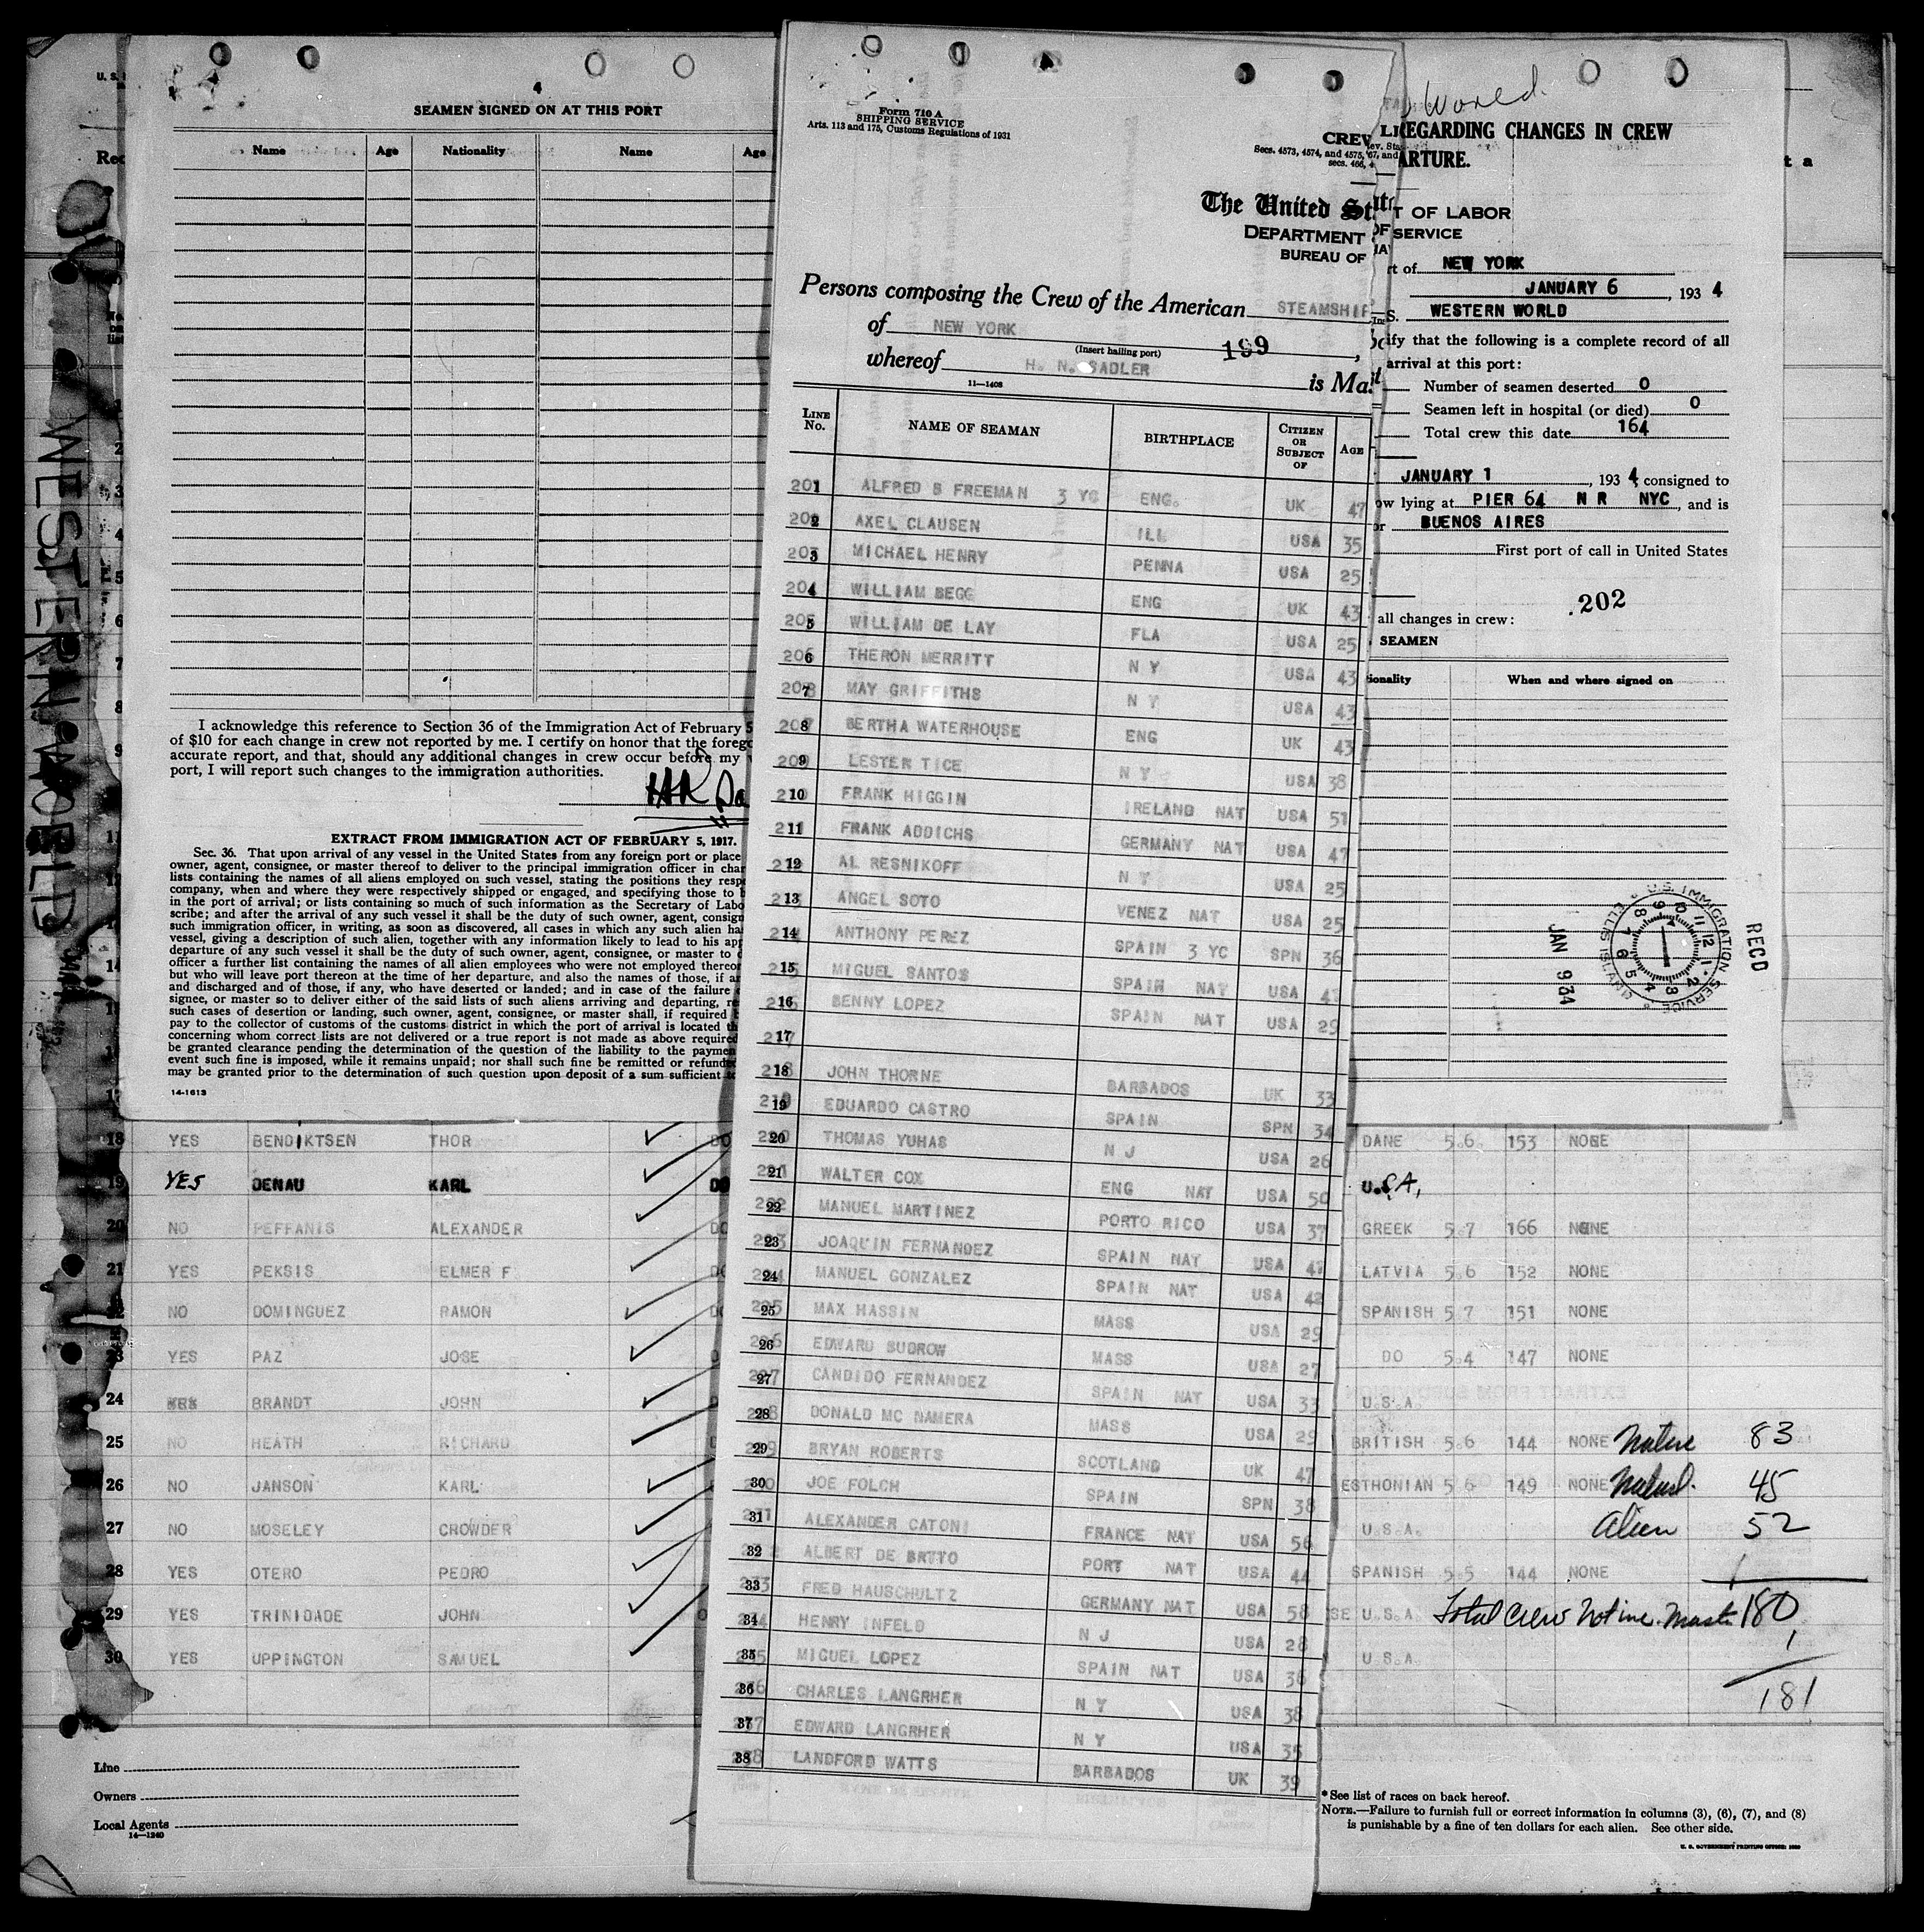 U. S.
Rec
t a
WESTERN WORLD
4
SEAMEN SIGNED ON AT THIS PORT
Name Age Nationality Name Age
I acknowledge this reference to Section 36 of the Immigration Act of February 5
of $10 for each change in crew not reported by me. I certify on honor that the forego
accurate report, and that, should any additional changes in crew occur before my
port, I will report such changes to the immigration authorities.
EXTRACT FROM IMMIGRATION ACT OF FEBRUARY 5, 1917.
Sec. 36. That upon arrival of any vessel in the United States from any foreign port or place
owner, agent, consignee, or master thereof to deliver to the principal immigration officer in char
lists containing the names of all aliens employed on such vessel, stating the positions they resp
company, when and where they were respectively shipped or engaged, and specifying those to b
in the port of arrival; or lists containing so much of such information as the Secretary of Labo
scribe; and after the arrival of any such vessel it shall be the duty of such owner, agent, consign
such immigration officer, in writing, as soon as discovered, all cases in which any such alien ha
vessel, giving a description of such alien, together with any information likely to lead to his app
departure of any such vessel it shall be the duty of such owner, agent, consignee, or master to d
officer a further list containing the names of all alien employees who were not employed thereon
but who will leave port thereon at the time of her departure, and also the names of those, if an
and discharged and of those, if any, who have deserted or landed; and in case of the failure
signee, or master so to deliver either of the said lists of such aliens arriving and departing, re
such cases of desertion or landing, such owner, agent, consignee, or master shall, if required b
pay to the collector of customs of the customs district in which the port of arrival is located th
concerning whom correct lists are not delivered or a true report is not made as above required
be granted clearance pending the determination of the question of the liability to the paymen
event such fine is imposed, while it remains unpaid; nor shall such fine be remitted or refunde
may be granted prior to the determination of such question upon deposit of a sum sufficient to
14-1613
Form 710 A
SHIPPING SERVICE
Arts. 113 and 175, Customs Regulations of 1931
CREW
Secs. 4573, 4574, and 4575,
secs. 466, 4
The United St
DEPARTMENT
BUREAU OF
Persons composing the Crew of the American STEAMSHIP
of NEW YORK
(Insert hailing port) 199
whereof H. N. SADLER is Ma
11—1408
LINE No. NAME OF SEAMAN BIRTHPLACE CITIZEN OR SUBJECT OF AGE
201 ALFRED S FREEMAN 3 YC ENG. UK 47
202 AXEL CLAUSEN ILL USA 35
203 MICHAEL HENRY PENNA USA 25
204 WILLIAM BEGG ENG UK 43
205 WILLIAM DE LAY FLA USA 25
206 THERON MERRITT N Y USA 43
207 MAY GRIFFITHS N Y USA 43
208 BERTHA WATERHOUSE ENG UK 43
209 LESTER TICE N Y USA 38
210 FRANK HIGGIN IRELAND NAT USA 51
211 FRANK ADDICHS GERMANY NAT USA 47
212 AL RESNIKOFF N Y USA 25
213 ANGEL SOTO VENEZ NAT USA 25
214 ANTHONY PEREZ SPAIN 3 YC SPN 36
215 MIGUEL SANTOS SPAIN NAT USA 47
216 BENNY LOPEZ SPAIN NAT USA 29
217
218 JOHN THORNE BARBADOS UK 33
219 EDUARDO CASTRO SPAIN SPN 34
220 THOMAS YUHAS N J USA 26
221 WALTER COX ENG NAT USA 50
222 MANUEL MARTINEZ PORTO RICO USA 37
223 JOAQUIN FERNANDEZ SPAIN NAT USA 47
224 MANUEL GONZALEZ SPAIN NAT USA 42
225 MAX HASSIN MASS USA 29
226 EDWARD BUDROW MASS USA 27
227 CANDIDO FERNANDEZ SPAIN NAT USA 33
228 DONALD MC NAMERA MASS USA 29
229 BRYAN ROBERTS SCOTLAND UK 47
230 JOE FOLCH SPAIN SPN 38
231 ALEXANDER CATONI FRANCE NAT USA 56
232 ALBERT DE BRTTO PORT NAT USA 44
233 FRED HAUSCHULTZ GERMANY NAT USA 58
234 HENRY INFELD N J USA 28
235 MIGUEL LOPEZ SPAIN NAT USA 36
236 CHARLES LANGRHER N Y USA 38
237 EDWARD LANGRHER N Y USA 35
238 LANDFORD WATTS BARBADOS UK 39
World
REGARDING CHANGES IN CREW
ARTURE.
T OF LABOR
SERVICE
rt of NEW YORK
JANUARY 6, 1934
S. WESTERN WORLD
ify that the following is a complete record of all
arrival at this port:
Number of seamen deserted 0
Seamen left in hospital (or died) 0
Total crew this date 164
JANUARY 1, 1934 consigned to
ow lying at PIER 64 N R NYC, and is
or BUENOS AIRES
First port of call in United States
.202
all changes in crew:
SEAMEN
ionality When and where signed on
RECD
U.S. IMMIGRATION SERVICE ELLIS ISLAND
JAN 934
18 YES BENDIKTSEN THOR DO DANE 5.6. 153 NONE
19 YES DENAU KARL DO U.S.A.
20 NO PEFFANIS ALEXANDER DO GREEK 5.7 166 NONE
21 YES PEKSIS ELMER F DO LATVIA 5.6 152 NONE
NO DOMINGUEZ RAMON DO SPANISH 5.7 151 NONE
23 YES PAZ JOSE DO 5.4 147 NONE
24 BRANDT JOHN U.S.A.
25 NO HEATH RICHARD BRITISH 5.6 144 NONE Native 83
26 NO JANSON KARL ESTHONIAN 5 6 149 NONE Natusl. 45
27 NO MOSELEY CROWDER U.S.A. Alien 52
28 YES OTERO PEDRO SPANISH 5.5 144 NONE
29 YES TRINIDADE JOHN SE U.S.A. Total Crew not inc. Mast 180
30 YES UPPINGTON SAMUEL U.S.A. 1
181
Line
Owners
Local Agents
14—1240
* See list of races on back hereof.
NOTE.—Failure to furnish full or correct information in columns (3), (6), (7), and (8)
is punishable by a fine of ten dollars for each alien. See other side.
U. S. GOVERNMENT PRINTING OFFICE: